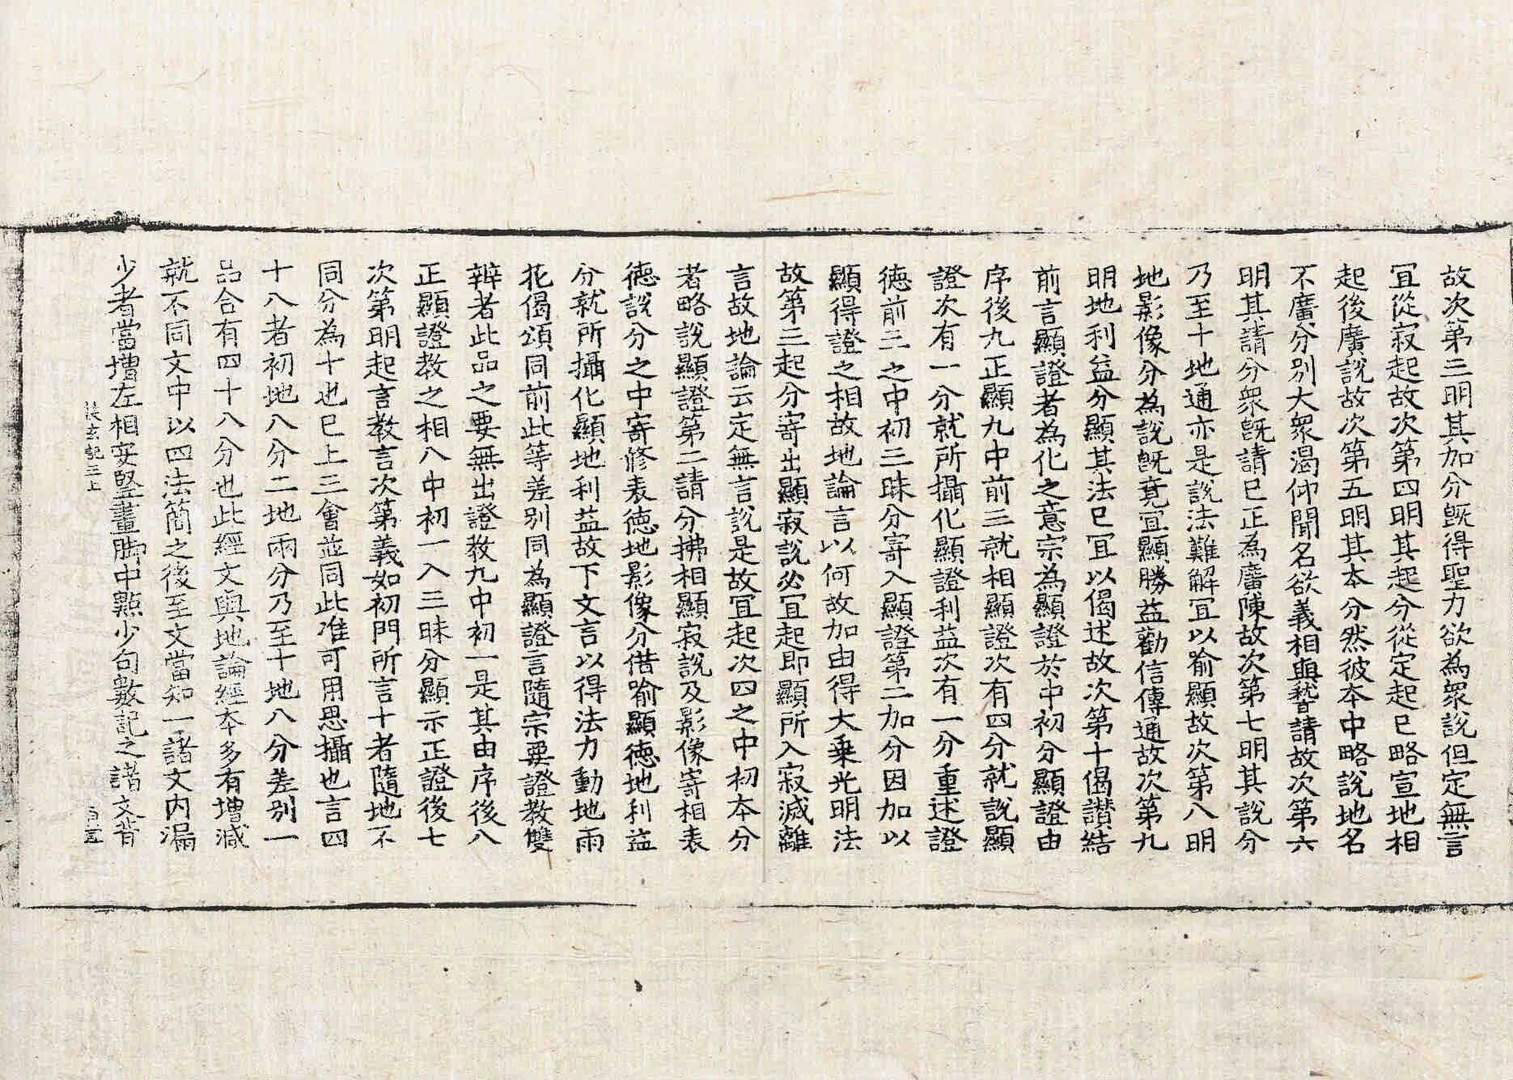 故次第三明其加分旣得聖力欲為衆說但定無言
冝從寂起故次第四明其起分從定起已略宣地相
起後廣說故次第五明其本分然彼本中略說地名
不廣分別大衆渴仰聞名欲義相與䭬請故次第六
明其請分衆旣請已正為廣陳故次第七明其說分
乃至十地通亦是說法難解冝以喻顯故次第八明
地影像分為說旣竟冝顯勝益勸信傳通故次第九
明地利益分顯其法已冝以偈述故次第十偈讃結
前言顯證者為化之意宗為顯證於中初分顯證由
序後九正顯九中前三就相顯證次有四分就說顯
證次有一分就所攝化顯證利益次有一分重述證
德前三之中初三昧分寄入顯證第二加分因加以
顯得證之相故地論言以何故加由得大乗光明法
故第三起分寄出顯寂說必冝起即顯所入寂滅離
言故地論云定無言說是故冝起次四之中初本分
者略說顯證第二請分拂相顯寂說及影像寄相表
德說分之中寄修表德地影像分借喻顯德地利益
分就所攝化顯地利益故下文言以得法力動地雨
花偈頌同前此等差別同為顯證言隨宗要證教雙
辨者此品之要無出證教九中初一是其由序後八
正顯證教之相八中初一入三昧分顯示正證後七
次第明起言教言次第義如初門所言十者隨地不
同分為十也已上三會並同此准可用思攝也言四
十八者初地八分二地兩分乃至十地八分差別一
品合有四十八分也此經文與地論經本多有增減
就不同文中以四法簡之後至文當知一諸文內漏
少者當增左相安竪畫脚中點少句數記之諸文昔